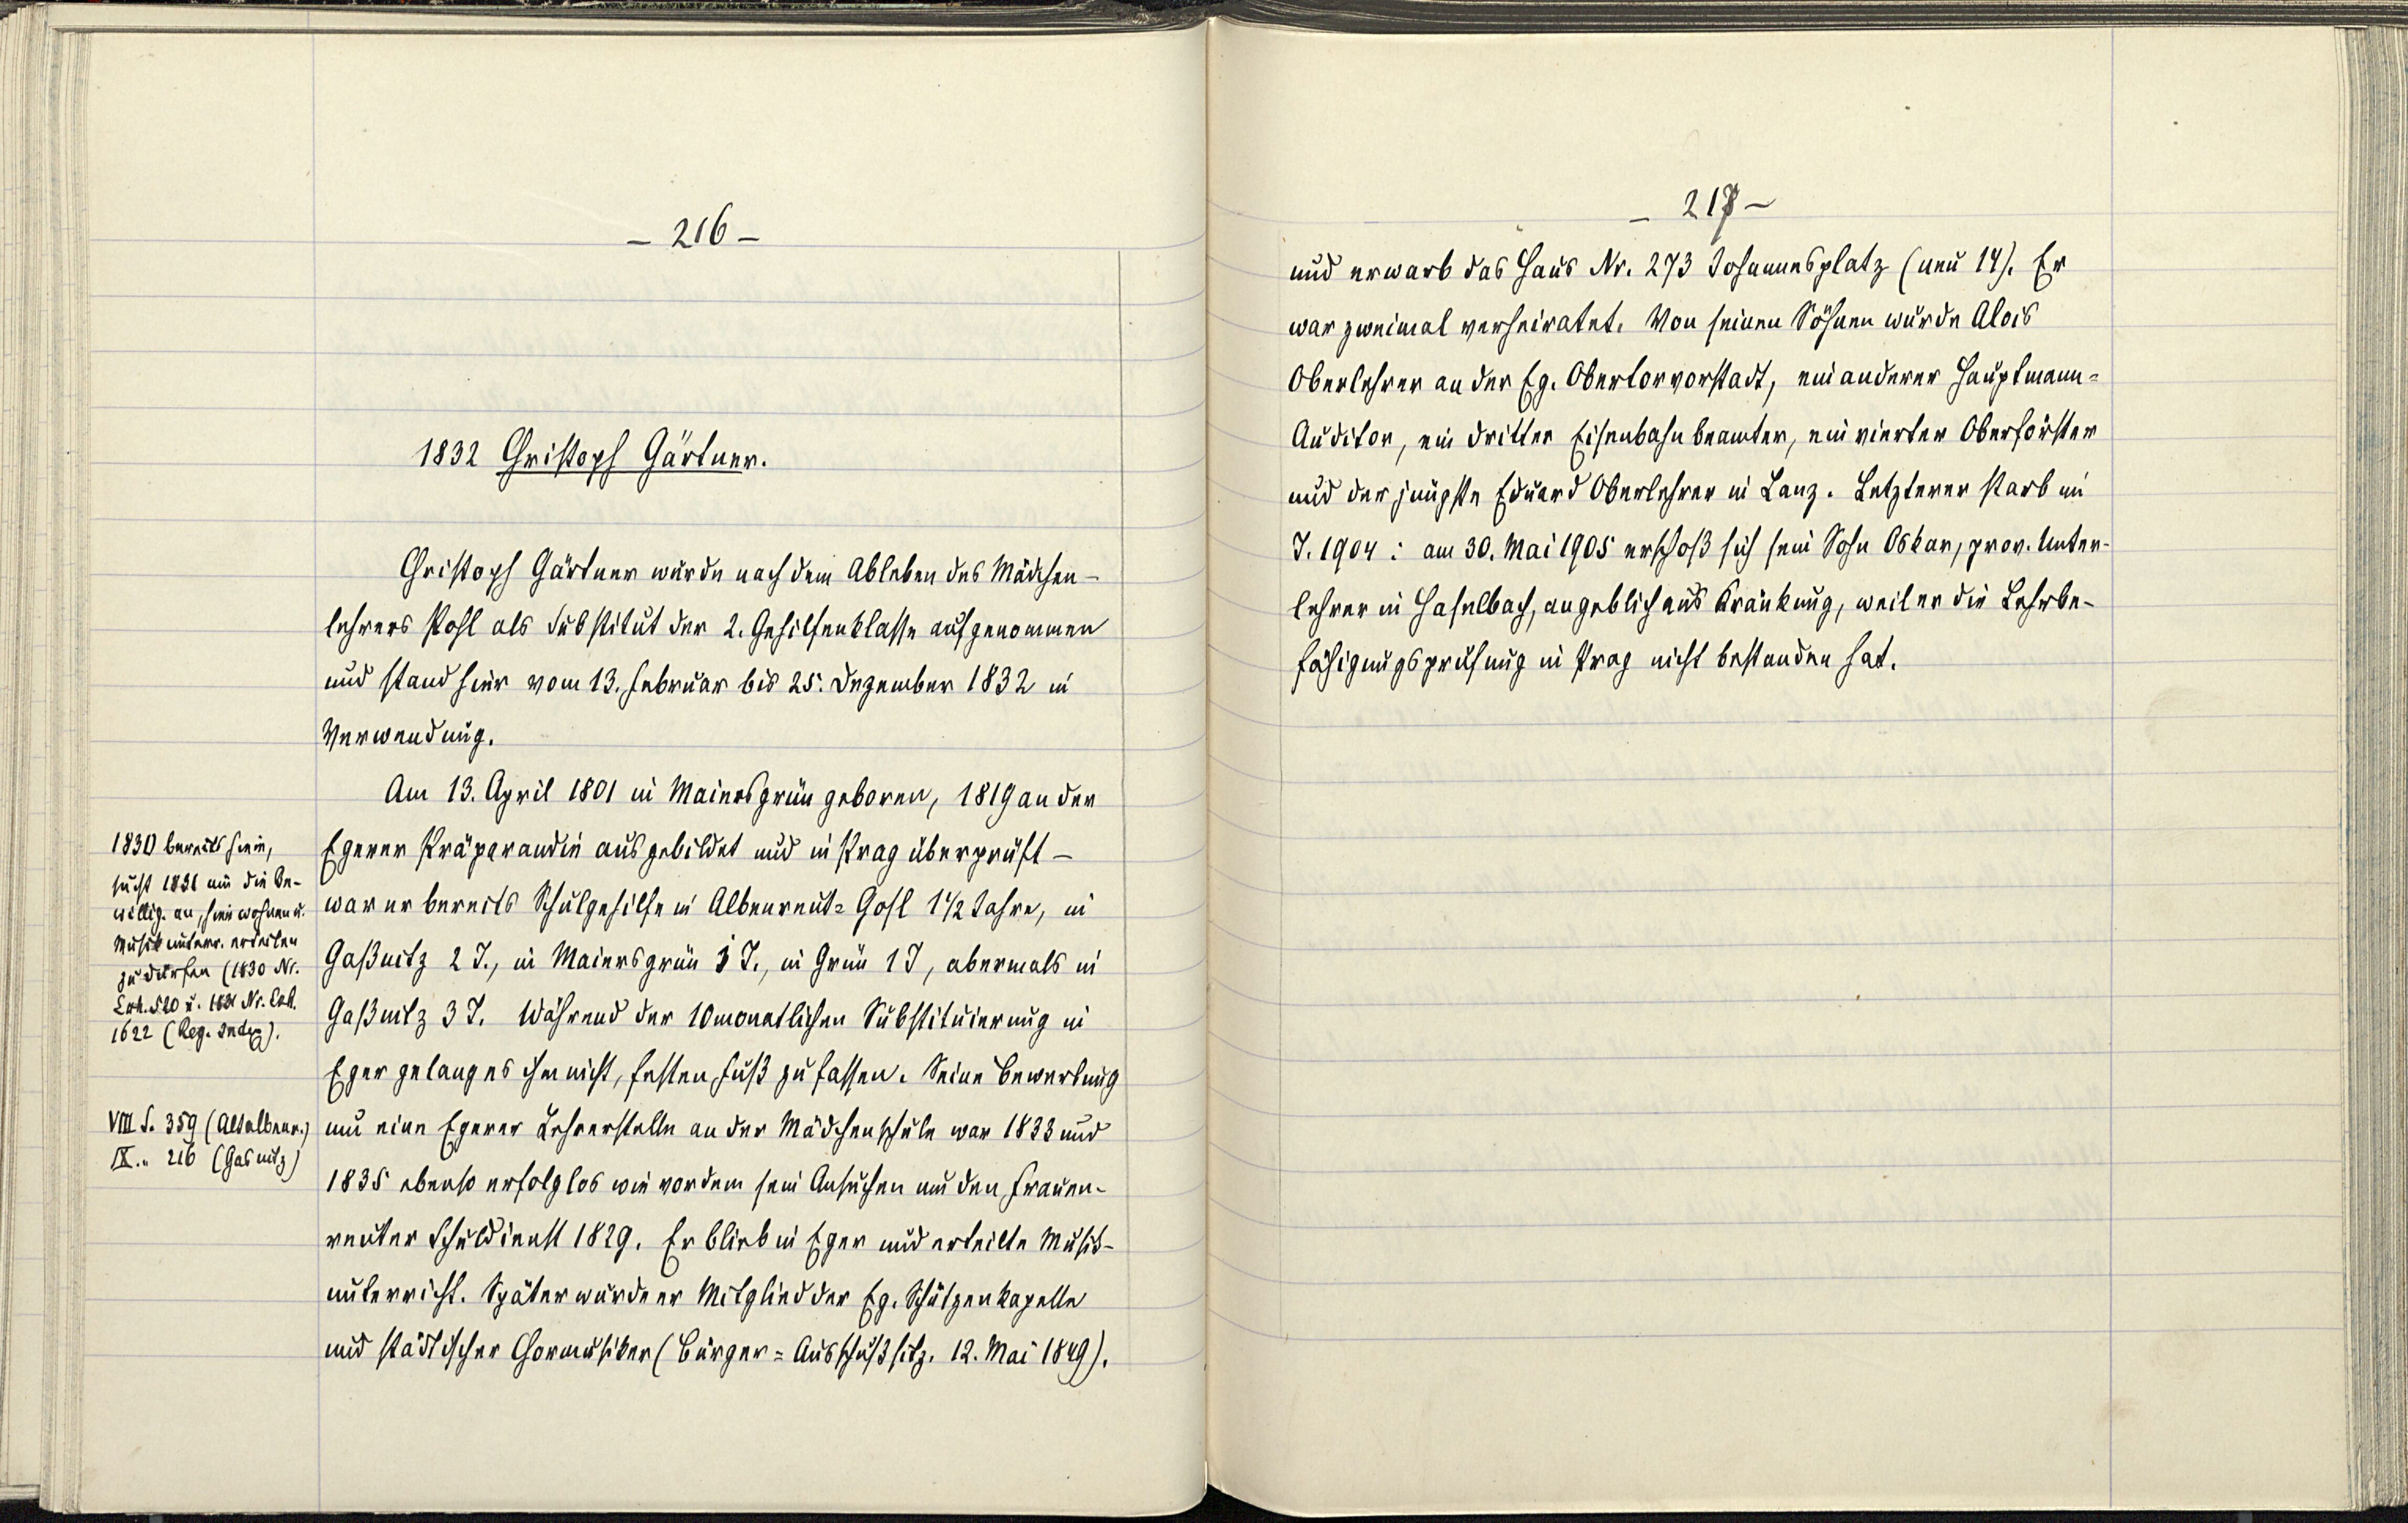 – 216 –
1832 Christoph Gärtner.
Christoph Gärtner wurde nach dem Ableben des Mädchen-
lehrers Pohl als Substitut der 2. Gehilfenklasse aufgenommen
und stand hier vom 13. Februar bis 25. Dezember 1832 in
Verwendung.
Am 13. April 1801 in Maiersgrün geboren, 1819 an der
Egerer Präparandie ausgebildet und in Prag überprüft –
war er bereits Schulgehilfe in Albenreut-Gosl 1 1/2 Jahre, in
Gaßnitz 2 J., in Maiersgrün 3 J., in Grün 1 J, abermals in
Gaßnitz 3 J. Während der 10 monatlichen Substituierung in
Eger gelang es ihm nicht, festen Fuß zu fassen. Seine Bewerbung
um eine Egerer Lehrerstelle an der Mädchenschule war 1833 und
1835 ebenso erfolglos wie vordem sein Ansuchen um den Frauen-
reuter Schuldienst 1829. Er blieb in Eger und erteilte Musik-
unterricht. Später wurde er Mitglied der Eg. Schützenkapelle
und städtischer Chormusiker (Bürger-Ausschußsitz. 12. Mai 1849).
1830 bereits hier,
sucht 1831 um die Be-
willig. an, hier wohnen u.
Musikunterr. erteilen
zu dürfen (1830 Nr.
Exh. 520 u. 1831 Nr. Exh.
1622 (Reg. Index).
VIII S. 359 (Altalbenr.)
IX. " 216 (Gasnitz)
– 217 –
und erwarb das Haus Nr. 273 Johannesplatz (neu 14). Er
war zweimal verheiratet. Von seinen Söhnen wurde Alois
Oberlehrer an der Eg. Obertorvorstadt, ein anderer Hauptmann-
Auditor, ein dritter Eisenbahnbeamter, ein vierter Oberförster
und der jüngste Eduard Oberlehrer in Lanz. Letzterer starb im
J. 1904: am 30. Mai 1905 erschoß sich sein Sohn Oskar, prov. Unter-
lehrer in Haselbach, angeblich aus Kränkung, weil er die Lehrbe-
fähigungsprüfung in Prag nicht bestanden hat.